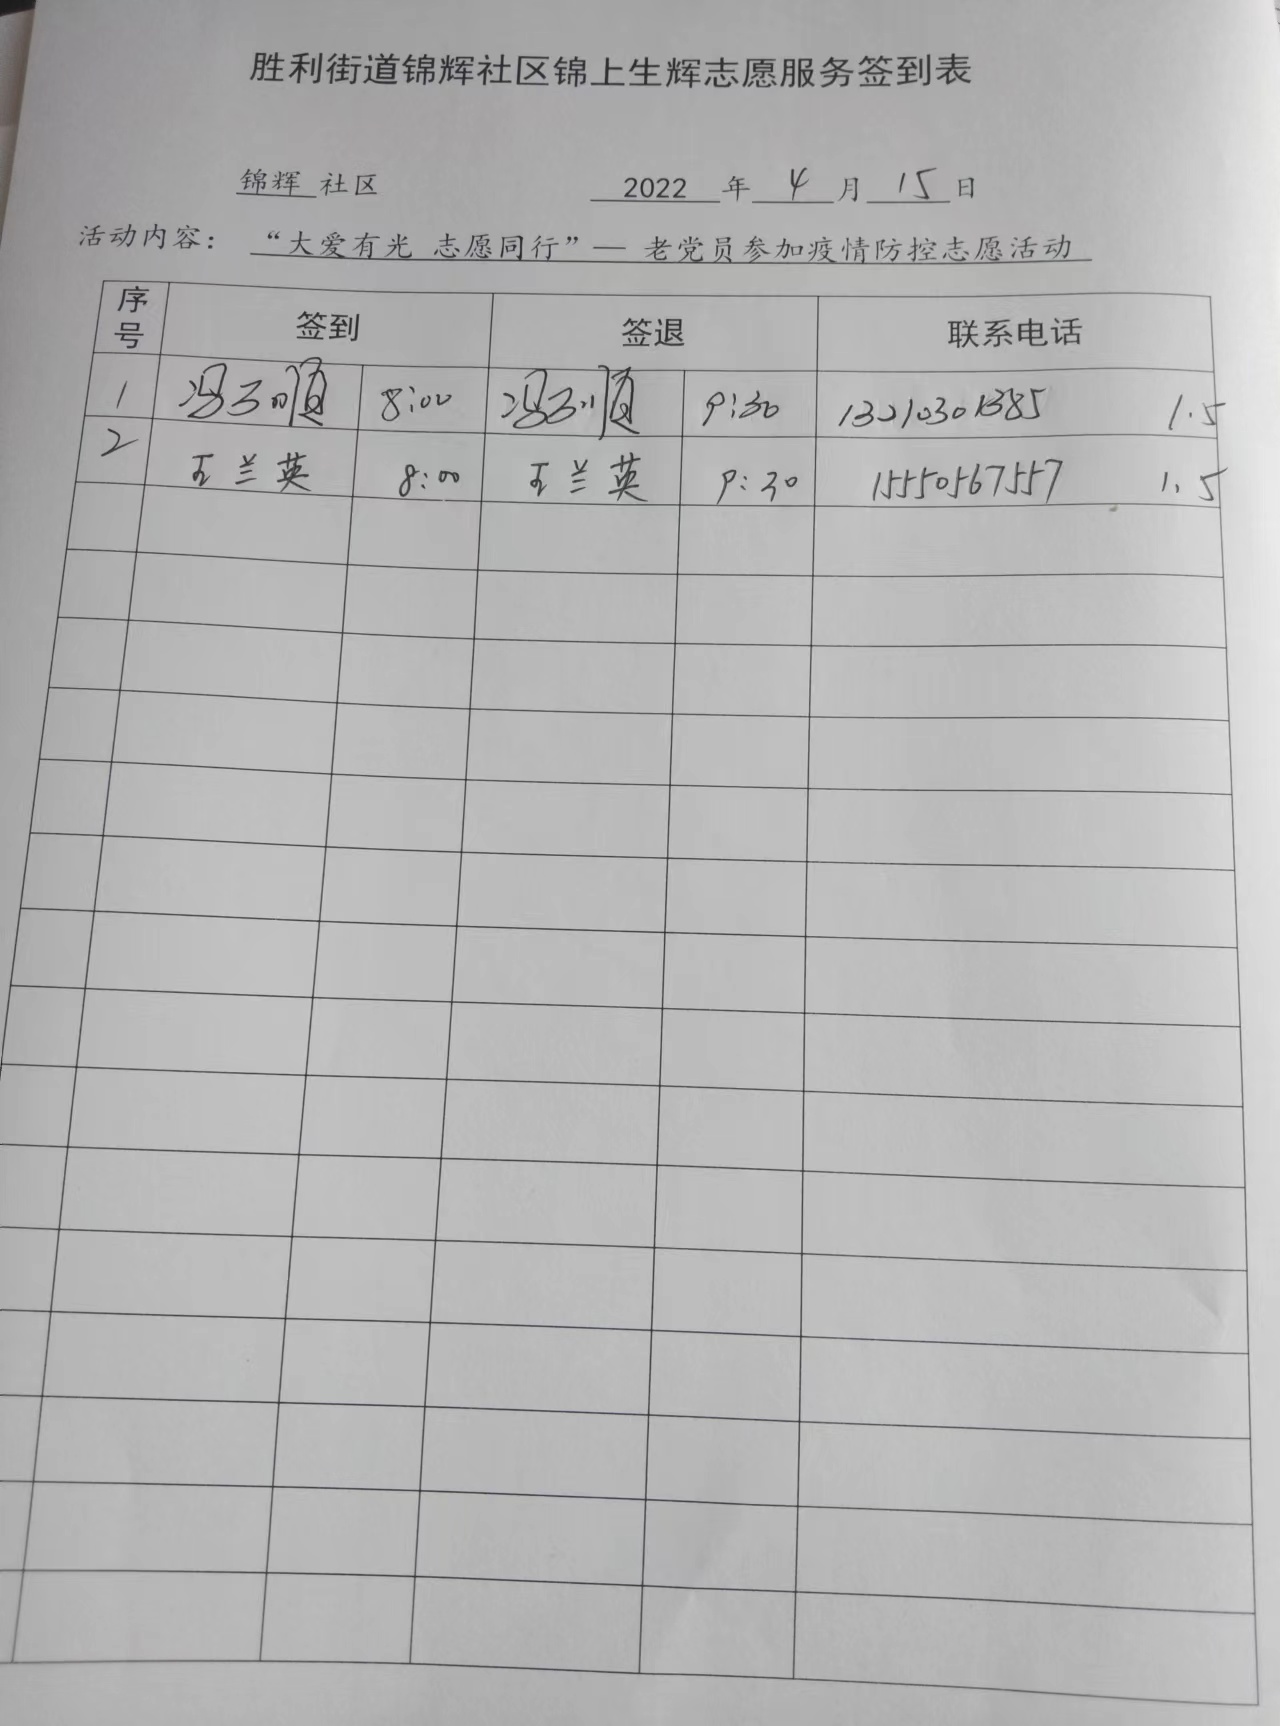 胜利街道锦辉社区锦上生辉志愿服务签到表
锦辉 社区 2022 年 4 月 15 日
活动内容： “大爱有光 志愿同行”— 老党员参加疫情防控志愿活动
序号 签到 签退 联系电话
1 冯 顺 8:00 冯 顺 9:30 13210301385 1.5
2 王兰英 8:00 王兰英 9:30 15550567557 1.5